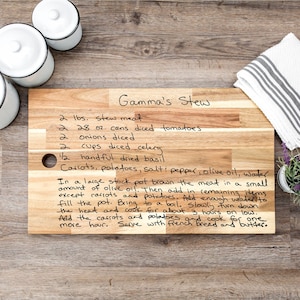 Gamma's Stew
2 lbs. stew meat
2 28 oz cans diced tomatoes
2 onions diced
2 cups diced celery
1/2 handful dried basil
Carrots, potatoes, salt, pepper, olive oil, water
In a large stock pot brown the meat in a small
amount of olive oil. Then add the remaining items
except carrots and potatoes. Add enough water to
fill the pot. Bring to a boil, slowly turn down
the heat and cook for about 3 hours on low.
Add the carrots and potatoes and cook for one
more hour. Serve with french bread and butter.